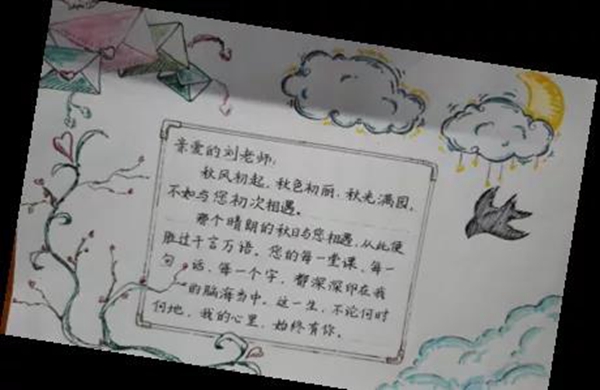 亲爱的刘老师:
秋风初起,秋色初丽,秋光满园,
不如与您初次相遇。
那个晴朗的秋日与您相遇,从此便
胜过千言万语。您的每一堂课,每一
句话,每一个字,都深深印在我
的脑海当中。这一生,不论何时
何地,我的心里,始终有你。